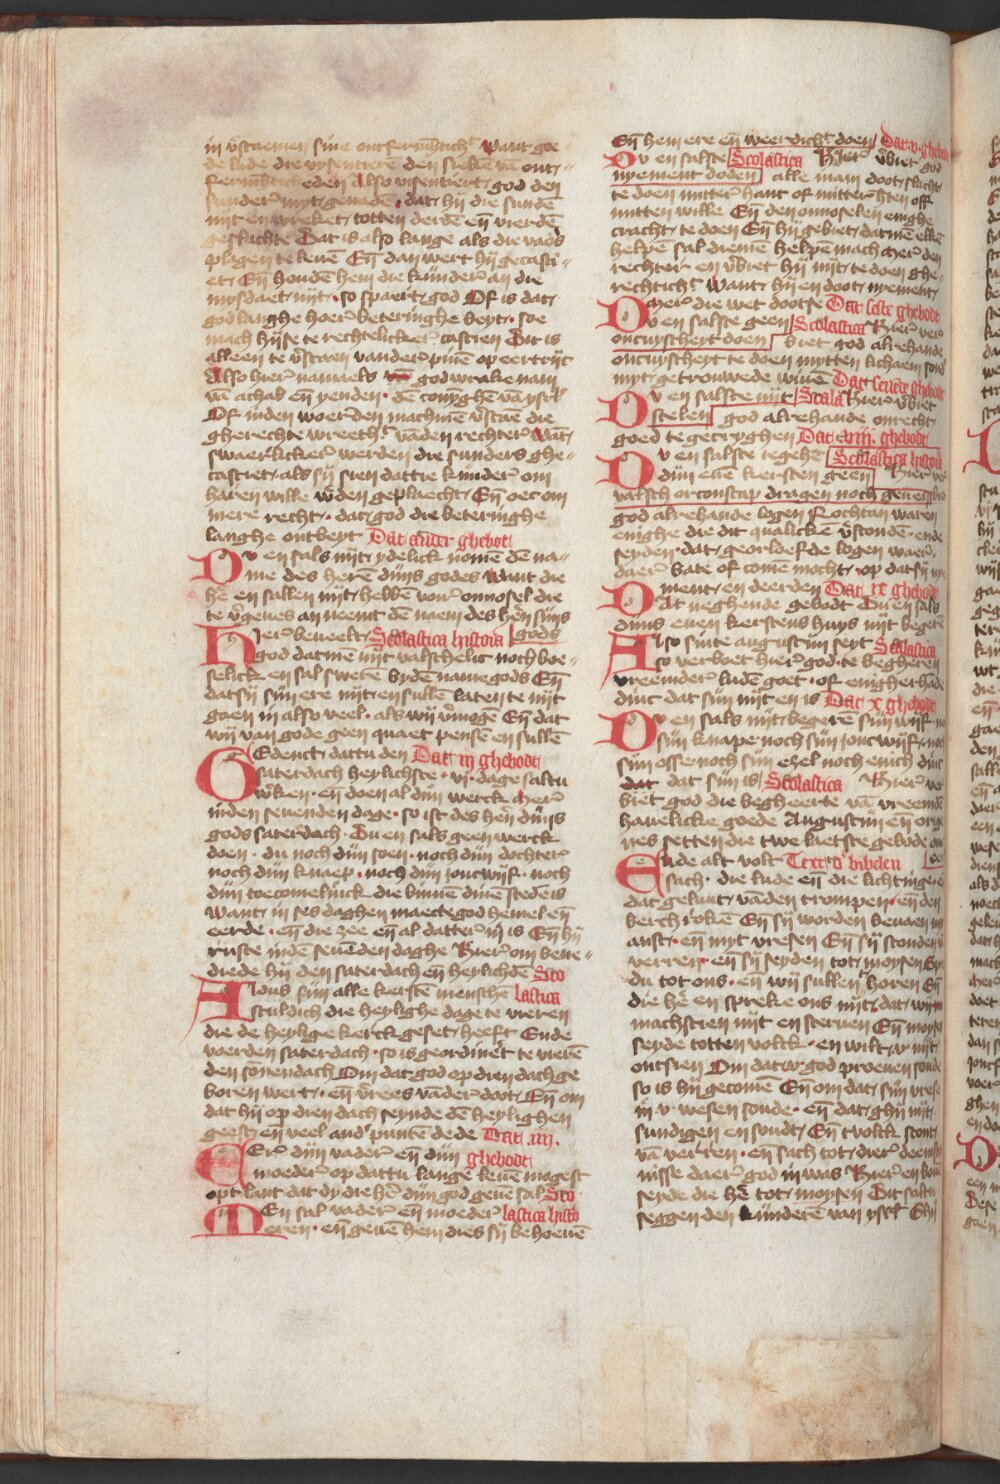 in verstaenen sine ontfermhticheit want goe
de lude die vysentieren den sieken van ont
fermhticheden Also visentiert god den
sunder myt genaden dat hij die sunden
nyt en wreket totten derden eñ vierden
geslachte Dat is also lange als die vaders
plagen te leuen Eñ dan wert hij gecasti
et Eñ houden hem die kunder an die
mysdaet nijt so spaert god Of is dat
god langhe hoer beteringhe beyt soe
mach hijse te rechtelicker castien Dit is
alleen te verstaen vander pinen op eertrijc
Also hier namaels god wrake nam
van achab eñ yenden den conyghe van ysrael
Of in den woerden machmen verstaen die
gherechte wreetheit vanden rechter want
swaerlicker werden die sunders ghe
castiet als sij sien dat tie kinder om
haren wille werden geplaecht Eñ oec om
mere recht dat god die beteringhe
langhe ontbeyt Dat ander ghebot
Du en sals nijt ydelick nomen den na
me des heren dijns godes Want die
here en sallen nijt hebben voer onnosel die
te vergeues an neemt den naem des heren sijns
Hier beueelt Scolastica historia gods
god datmen nijt valschelic noch boe
selick en sal sweren byden name gods Eñ
dat sij sijn ere nijt en sullen laten te nijt
gaen in also veel als wij vermogen Eñ dat
wij van gode geen quaet pensen en sullen
Gedenct dattu den Dat iij ghebodt
saterdach heylichste vi dage saltu
werken eñ doen al dijn werck Mer
inden seuenden dage so ist des heren dijns
gods saterdach Du en sals geen werck
doen du noch dijn soen noch dijn dochter
noch dijn knaep noch dijn joncwijf noch
dijn toecomelinck die binnen dinen steden is
Want in ses daghen maecte god hemel eñ
eerde eñ die zee eñ al datter in is Eñ hij
ruste inden seuenden daghe Hier om bene
diede hij den saterdach eñ heylichden Sco
Aldus sijn alle kersten menschen lastica
sculdich die heylighe dage te vieren
die de heylige kerck geset heeft Ende
voerden saterdach so is geordinert te vieren
den sonnendach Om dat god op dien dach ge
boren wert eñ verrees vander doot Eñ om
dat hij op dien dach seynde den heylighen
geest eñ veel ander punten dede Dat iiij.
Eer dijn vader eñ dijn ghebodt
moeder op dattu lange leuen mogest
opt lant dat dy die here dijn god geuen sal Sco
Men sal vader eñ moeder lastica histo
eren eñ geuen hem dies sij behoeuen
Eñ hem ere eñ weerdicheit doen Dat v ghebodt
Du en salste Scolastica Hier verbiet god
nyement doden alle man doot slacht
te doen mitter hant of mitter herten off
mitten wille Eñ den onnoselen enighe
cracht te doen Eñ hij gebiet datmen elken
helpen sal diemen helpen mach Mer den
rechter en verbiet hij nijt te doen ghe
rechticheit Want hij en doot nyement
Mer die wet dootse Dat seste ghebodt
Du en salste geen Scolastica Hier ver
oncuyscheyt doen biet god alrehande
oncuyscheyt te doen mytten lichaem sond
myt getrouwede wiuen Dat seuende ghebodt
Du en salste nijt Scala Hier verbiet
stelen god alrehande onrecht
goed te getryghen Dat viij. ghebodt
Du en salste iegehen Scolastica histori
dijn euen kersten geen Hier ver
valsch orconscap dragen noch geuen biet
god alrehande logen Nochtan waren
enighe die dit qualicken verstonden ende
seyden dat georloefde logen waer
daer bate of comen mocht op dat sij ny
ment en deerden Dat ix ghebodt
Dat neghende gebodt Du en sals
dijns euen kerstens huys nijt begeren
Also sinte augustijn seyt Scolastica
so verboet hier god te begheren
vreemder luden goet of enigherhande
dinc dat sijn nijt en is Dat x ghebodt
Du en sals nijt begeren sijn wijf no
sijn knape noch sijn joncwijf noch
sijn osse noch sijn ezel noch enich dinc
dat dat sijn is Scolastica Hier ver
biet god die begheerte van vreemde
hauelicke goede Augustijn eñ orige
nes setten die twe laetste gebode on
Ende alt volt Text der bibelen
sach die lude eñ die lichtinge eñ
dat geluut vanden trompen eñ den
berch roken Eñ sij worden beuaen my
anst eñ myt vresen Eñ sij stonden v
verren eñ sij seyden tot moysen Sp
du tot ons eñ wij sullen horen Eñ
die here en spreke ons nijt dat wijt
machscien nijt en steruen Eñ moyse
seyde totten volck en wilt v nijt
ontsien Om dat v god proeuen soude
so is hij gecomen Eñ om dat sijn vrese
in v wesen soude eñ dat ghij nijt
sundigen en soudt Eñ tvolck stont
van verren eñ sach tot dier deemste
nisse daer god in was Hier en bouen
seyde die here tot moysen Dit saltu
seggen den kinderen van ysrael Ghij